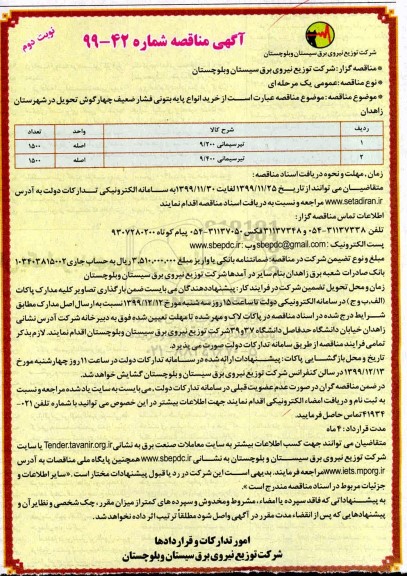 نوبت دوم
آگهی مناقصه شماره ۴۲-۹۹
شرکت توزیع نیروی برق سیستان وبلوچستان
* مناقصه گزار: شرکت توزیع نیروی برق سیستان وبلوچستان
* نوع مناقصه: عمومی یک مرحله ای
* موضوع مناقصه: موضوع مناقصه عبارت است از خرید انواع پایه بتونی فشار ضعیف چهارگوش تحویل در شهرستان
زاهدان
ردیف شرح کالا واحد تعداد
۱ تیرسیمانی ۹/۲۰۰ اصله ۱۵۰۰
۲ تیرسیمانی ۹/۴۰۰ اصله ۱۵۰۰
زمان، مهلت و نحوه دریافت اسناد مناقصه:
متقاضیان می توانند از تاریخ ۱۳۹۹/۱۱/۲۵ لغایت ۱۳۹۹/۱۱/۳۰ به سامانه الکترونیکی تدارکات دولت به آدرس
www.setadiran.ir مراجعه و نسبت به دریافت اسناد مناقصه اقدام نمایند
اطلاعات تماس مناقصه گزار:
تلفن ۳۱۱۳۷۳۳۸-۰۵۴ و ۳۱۱۳۷۳۴۸ فکس ۳۱۱۳۷۰۵۰-۰۵۴ پیام کوتاه ۹۳۰۷۲۸۰۲۰۰
پست الکترونیک: sbepdc@gmail.com وب: www.sbepdc.ir
مبلغ و نوع تضمین شرکت در مناقصه: ضمانتنامه بانکی یا واریز مبلغ ۳،۵۱۰،۰۰۰،۰۰۰ ریال به حساب جاری ۰۱۰۳۴۰۳۸۱۵۰۰۲
بانک صادرات شعبه برق زاهدان بنام سایر در آمدها شرکت توزیع نیروی برق سیستان وبلوچستان
زمان و محل تحویل تضمین شرکت در فرایند کار: پیشنهاددهندگان می بایست ضمن بارگذاری تصاویر کلیه مدارک پاکات
(الف، ب و ج) در سامانه الکترونیکی دولت تا ساعت ۱۵ روز سه شنبه مورخ ۱۳۹۹/۱۲/۱۲ نسبت به ارسال اصل مدارک مطابق
شرایط درج شده در اسناد مناقصه در پاکات لاک و مهر شده تا مهلت تعیین شده فوق به دبیرخانه شرکت آدرس نشانی
زاهدان خیابان دانشگاه حدفاصل دانشگاه ۳۷ و ۳۹ شرکت توزیع نیروی برق سیستان وبلوچستان اقدام نمایند. لازم بذکر
تمامی فرایند مناقصه از طریق سامانه تدارکات دولت صورت می پذیرد.
تاریخ و محل بازگشایی پاکات: پیشنهادات ارائه شده در سامانه تدارکات دولت در ساعت ۱۱ روز چهارشنبه مورخ
۱۳۹۹/۱۲/۱۳ در سالن کنفرانس شرکت توزیع نیروی برق سیستان وبلوچستان گشایش خواهد شد.
در ضمن مناقصه گران در صورت عدم عضویت قبلی در سامانه تدارکات دولت، می بایست به سایت یاد شده مراجعه و نسبت
به ثبت نام و دریافت امضاء الکترونیکی اقدام نمایند جهت اطلاعات بیشتر در این خصوص می توانید با شماره تلفن ۰۲۱-
۴۱۹۳۴ تماس حاصل فرمایید.
مدت قرارداد: ۴ ماه
متقاضیان می توانند جهت کسب اطلاعات بیشتر به سایت معاملات صنعت برق به نشانی Tender.tavanir.org.ir یا سایت
شرکت توزیع نیروی برق سیستان وبلوچستان به نشانی www.sbepdc.ir همچنین پایگاه ملی مناقصات به آدرس
www.iets.mporg.ir مراجعه فرمایند. بدیهی است این شرکت در رد یا قبول پیشنهادات مختار است. «سایر اطلاعات و
جزئیات مربوط در اسناد مناقصه مندرج است».
به پیشنهاداتی که فاقد سپرده یا امضاء، مشروط و مخدوش و سپرده های کمتر از میزان مقرر، چک شخصی و نظایر آن و
پیشنهادهایی که پس از انقضاء مدت مقرر در آگهی واصل شود مطلقاً ترتیب اثر داده نخواهد شد.
امور تدارکات و قراردادها
شرکت توزیع نیروی برق سیستان وبلوچستان